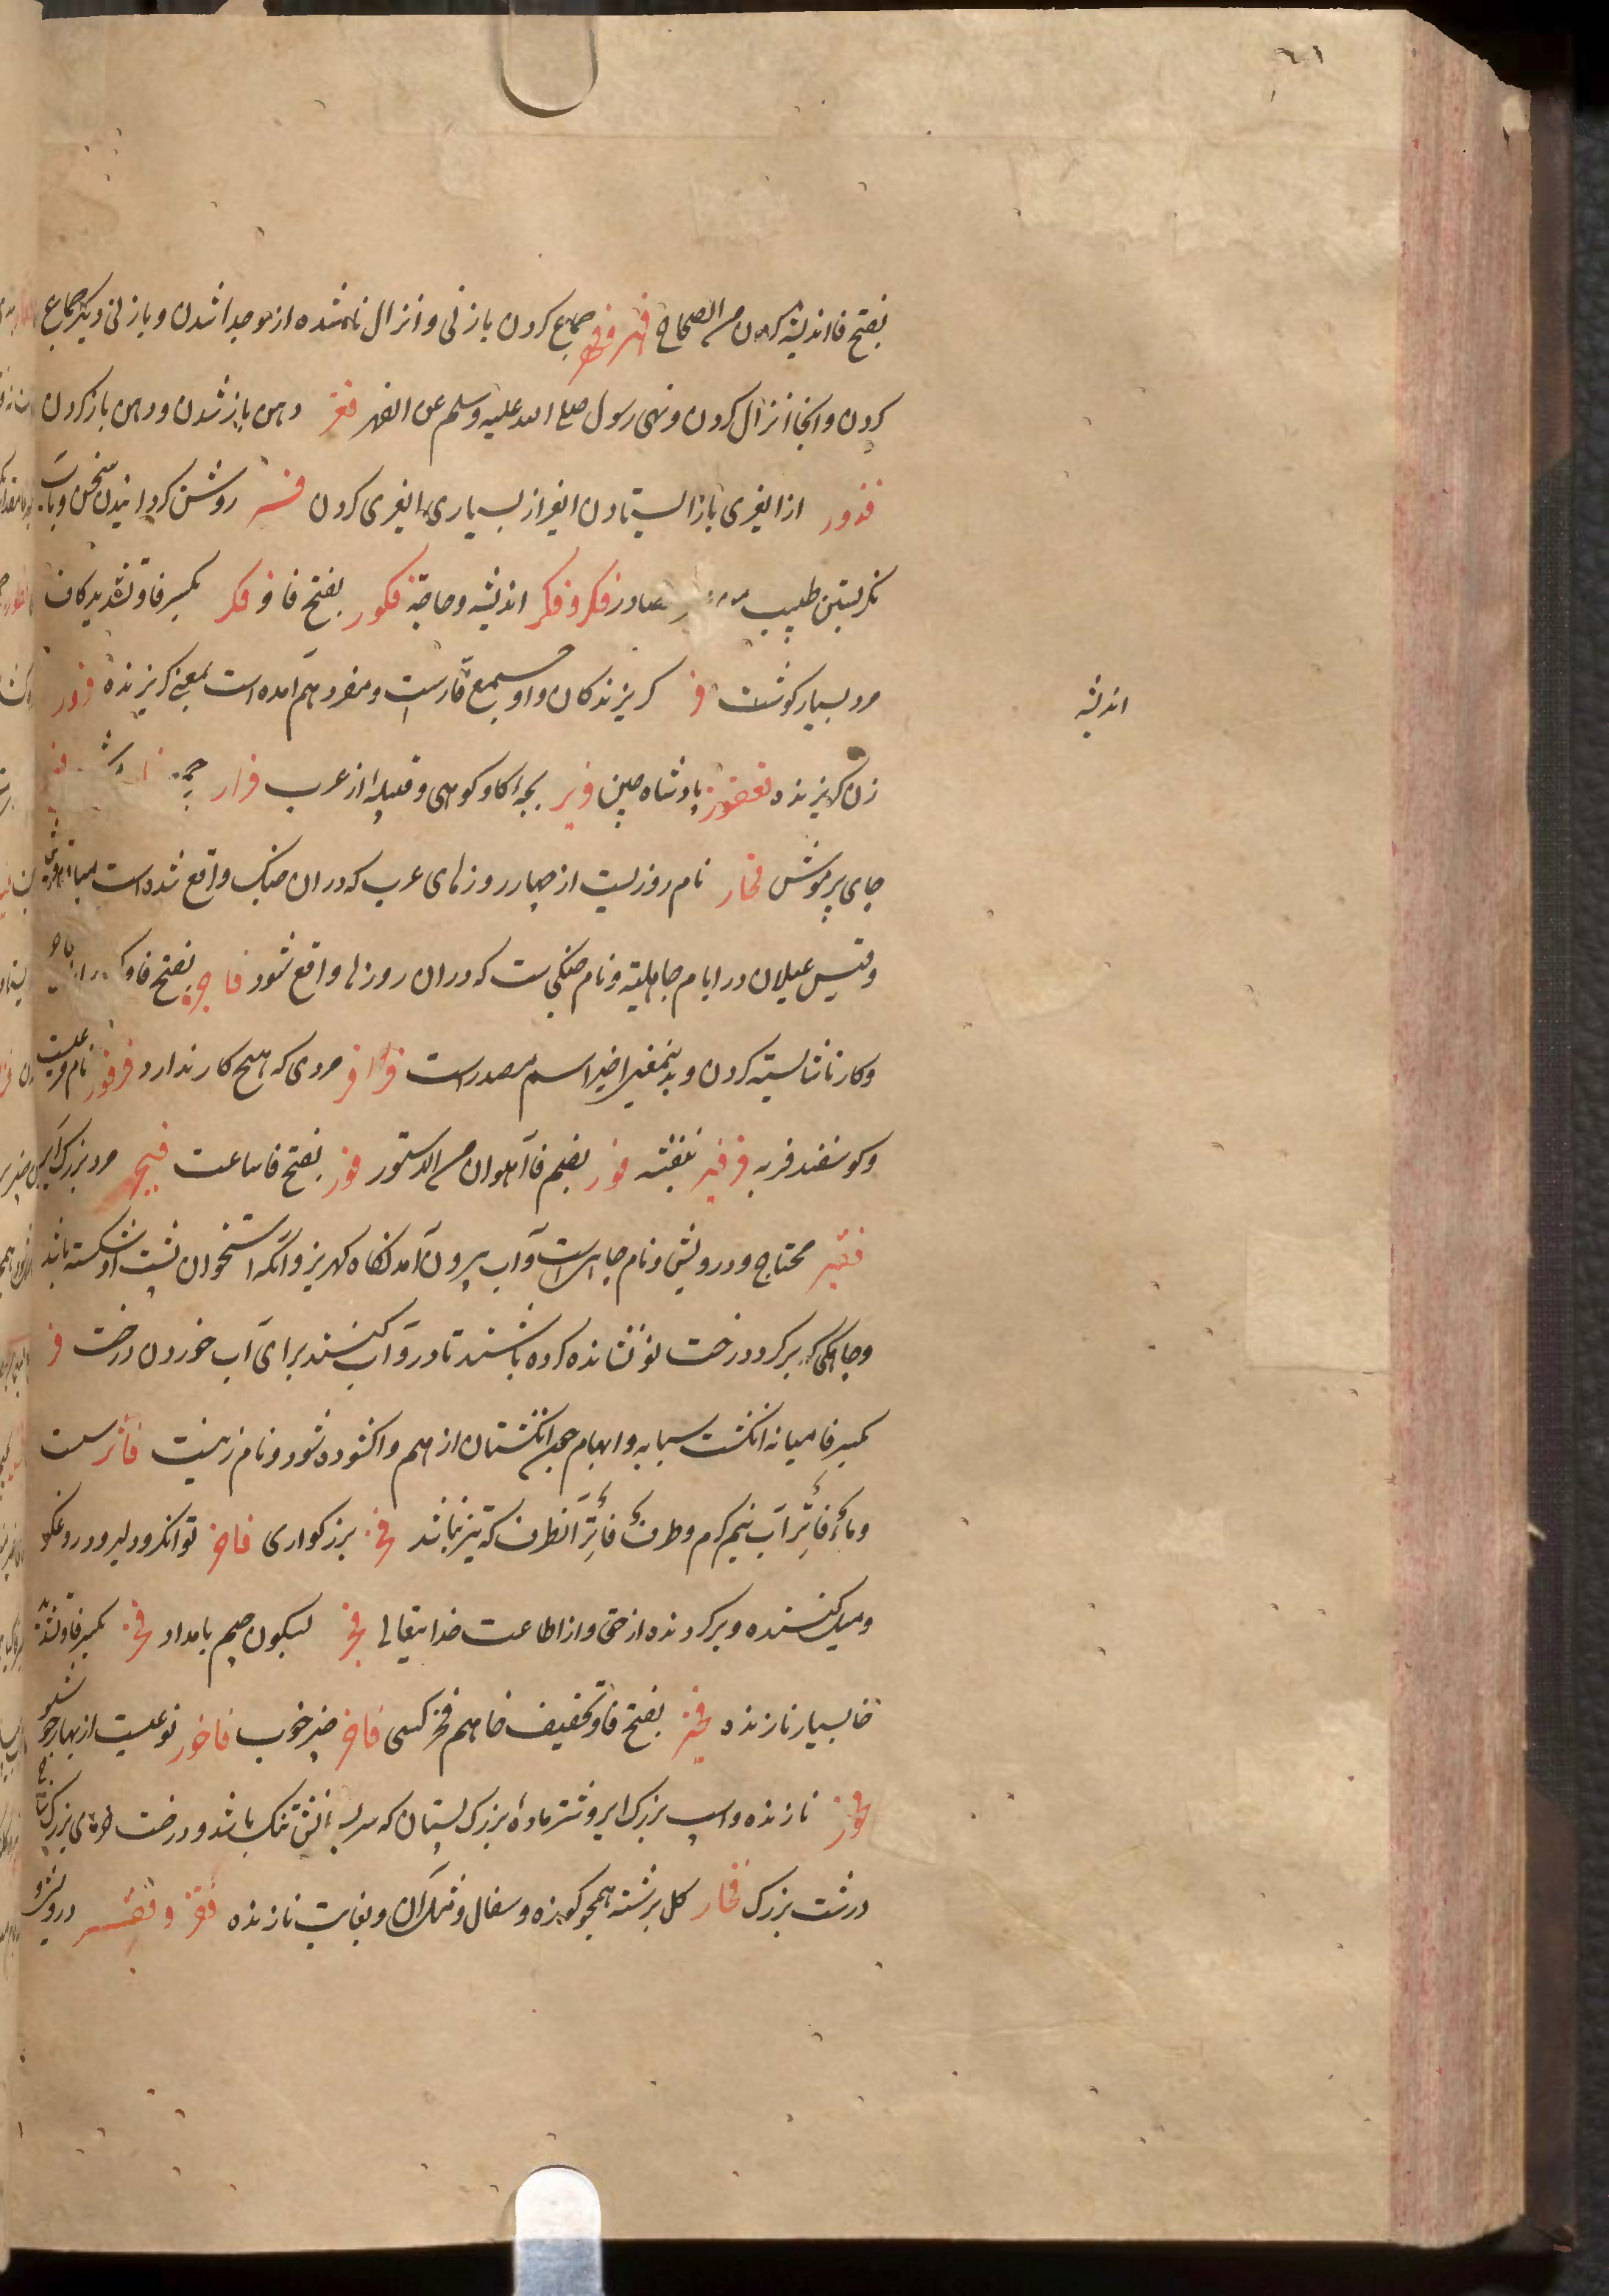 ٦١
بفتح فا اندیشه کردن من الصحاح فهر و فهر جماع کردن بازنی و انزال ناشده ازو جدا شدن و بازنی دیگر جماع
کردن و آنجا انزال کردن و نهی رسول صلی الله علیه وسلم عن الفهر فغر دهن باز شدن و دهن باز کردن
فدور از ایغری باز ایستادن ایغر از بسیاری ایغری کردن فسر روشن کردانیدن سخن و
نکریستن طبیب فکر و فکر اندیشه و حاجة فکور بفتح فا و فکر بکسر فا و تشدید کاف
اندیشه
مرد بسیار کوشت فر کریزندکان و او جمع فارست و مفرد هم آمده است بمعنی کریزنده فرور
زن کریزنده فغفور پادشاه چین فریر بچه کاو کوهی و قبیله از عرب فرار
جای پر موش فجار نام روزیست از چهار روزهای عرب که در آن جنک واقع شده است میان قریش
و قیس عیلان در ایام جاهلیة و نام جنکی ست که در آن روزها واقع شود فاجر بفتح فا و
و کار ناشایسته کردن و بدین معنی اخیر اسم مصدر است فرافر مردی که هیچ کار ندارد فرفور نام مرغیست
و کوسفند فربه فرفیر بنفشه فور بضم فا آهوان من الدستور فور بفتح فا ساعت فیجر مرد بزرک
فقیر محتاج و درویش و نام جاهی است و آب بیرون آمدنکاه کهریز و آنکه استخوان پشت او شکسته باشد
و چاهکی که بر کرد درخت نو نشانده کرده باشند تا در و آب کنند برای آب خوردن درخت فر
بکسر فا میانه انکشت سبابه و ابهام چون انکشتان از هم واکشوده شود و نام زنیست فاتر سست
و ماء فاتر آب نیم کرم و طرف فاتر آن طرف که تیز نباشد فخر بزرکواری فاجر توانکر و دلیر و دروغکو
و میل کننده و برکردنده از حق و از اطاعت خدایتعالی فجر بسکون جیم بامداد فخر بکسر فا و تشدید
خا بسیار نازنده فخیر بفتح فا و تخفیف خا هم فخر کسی فاخر چیز خوب فاخور نوعیست از بهار خوشبو
فخور نازنده و اسپ بزرک ایر و شتر ماده بزرک پستان که سر پستانش تنک باشد و درخت خرمای بزرک
درشت بزرک فخار کل برشته همچو کوزه و سفال و و بغایت نازنده فقر و فقر درویشی و